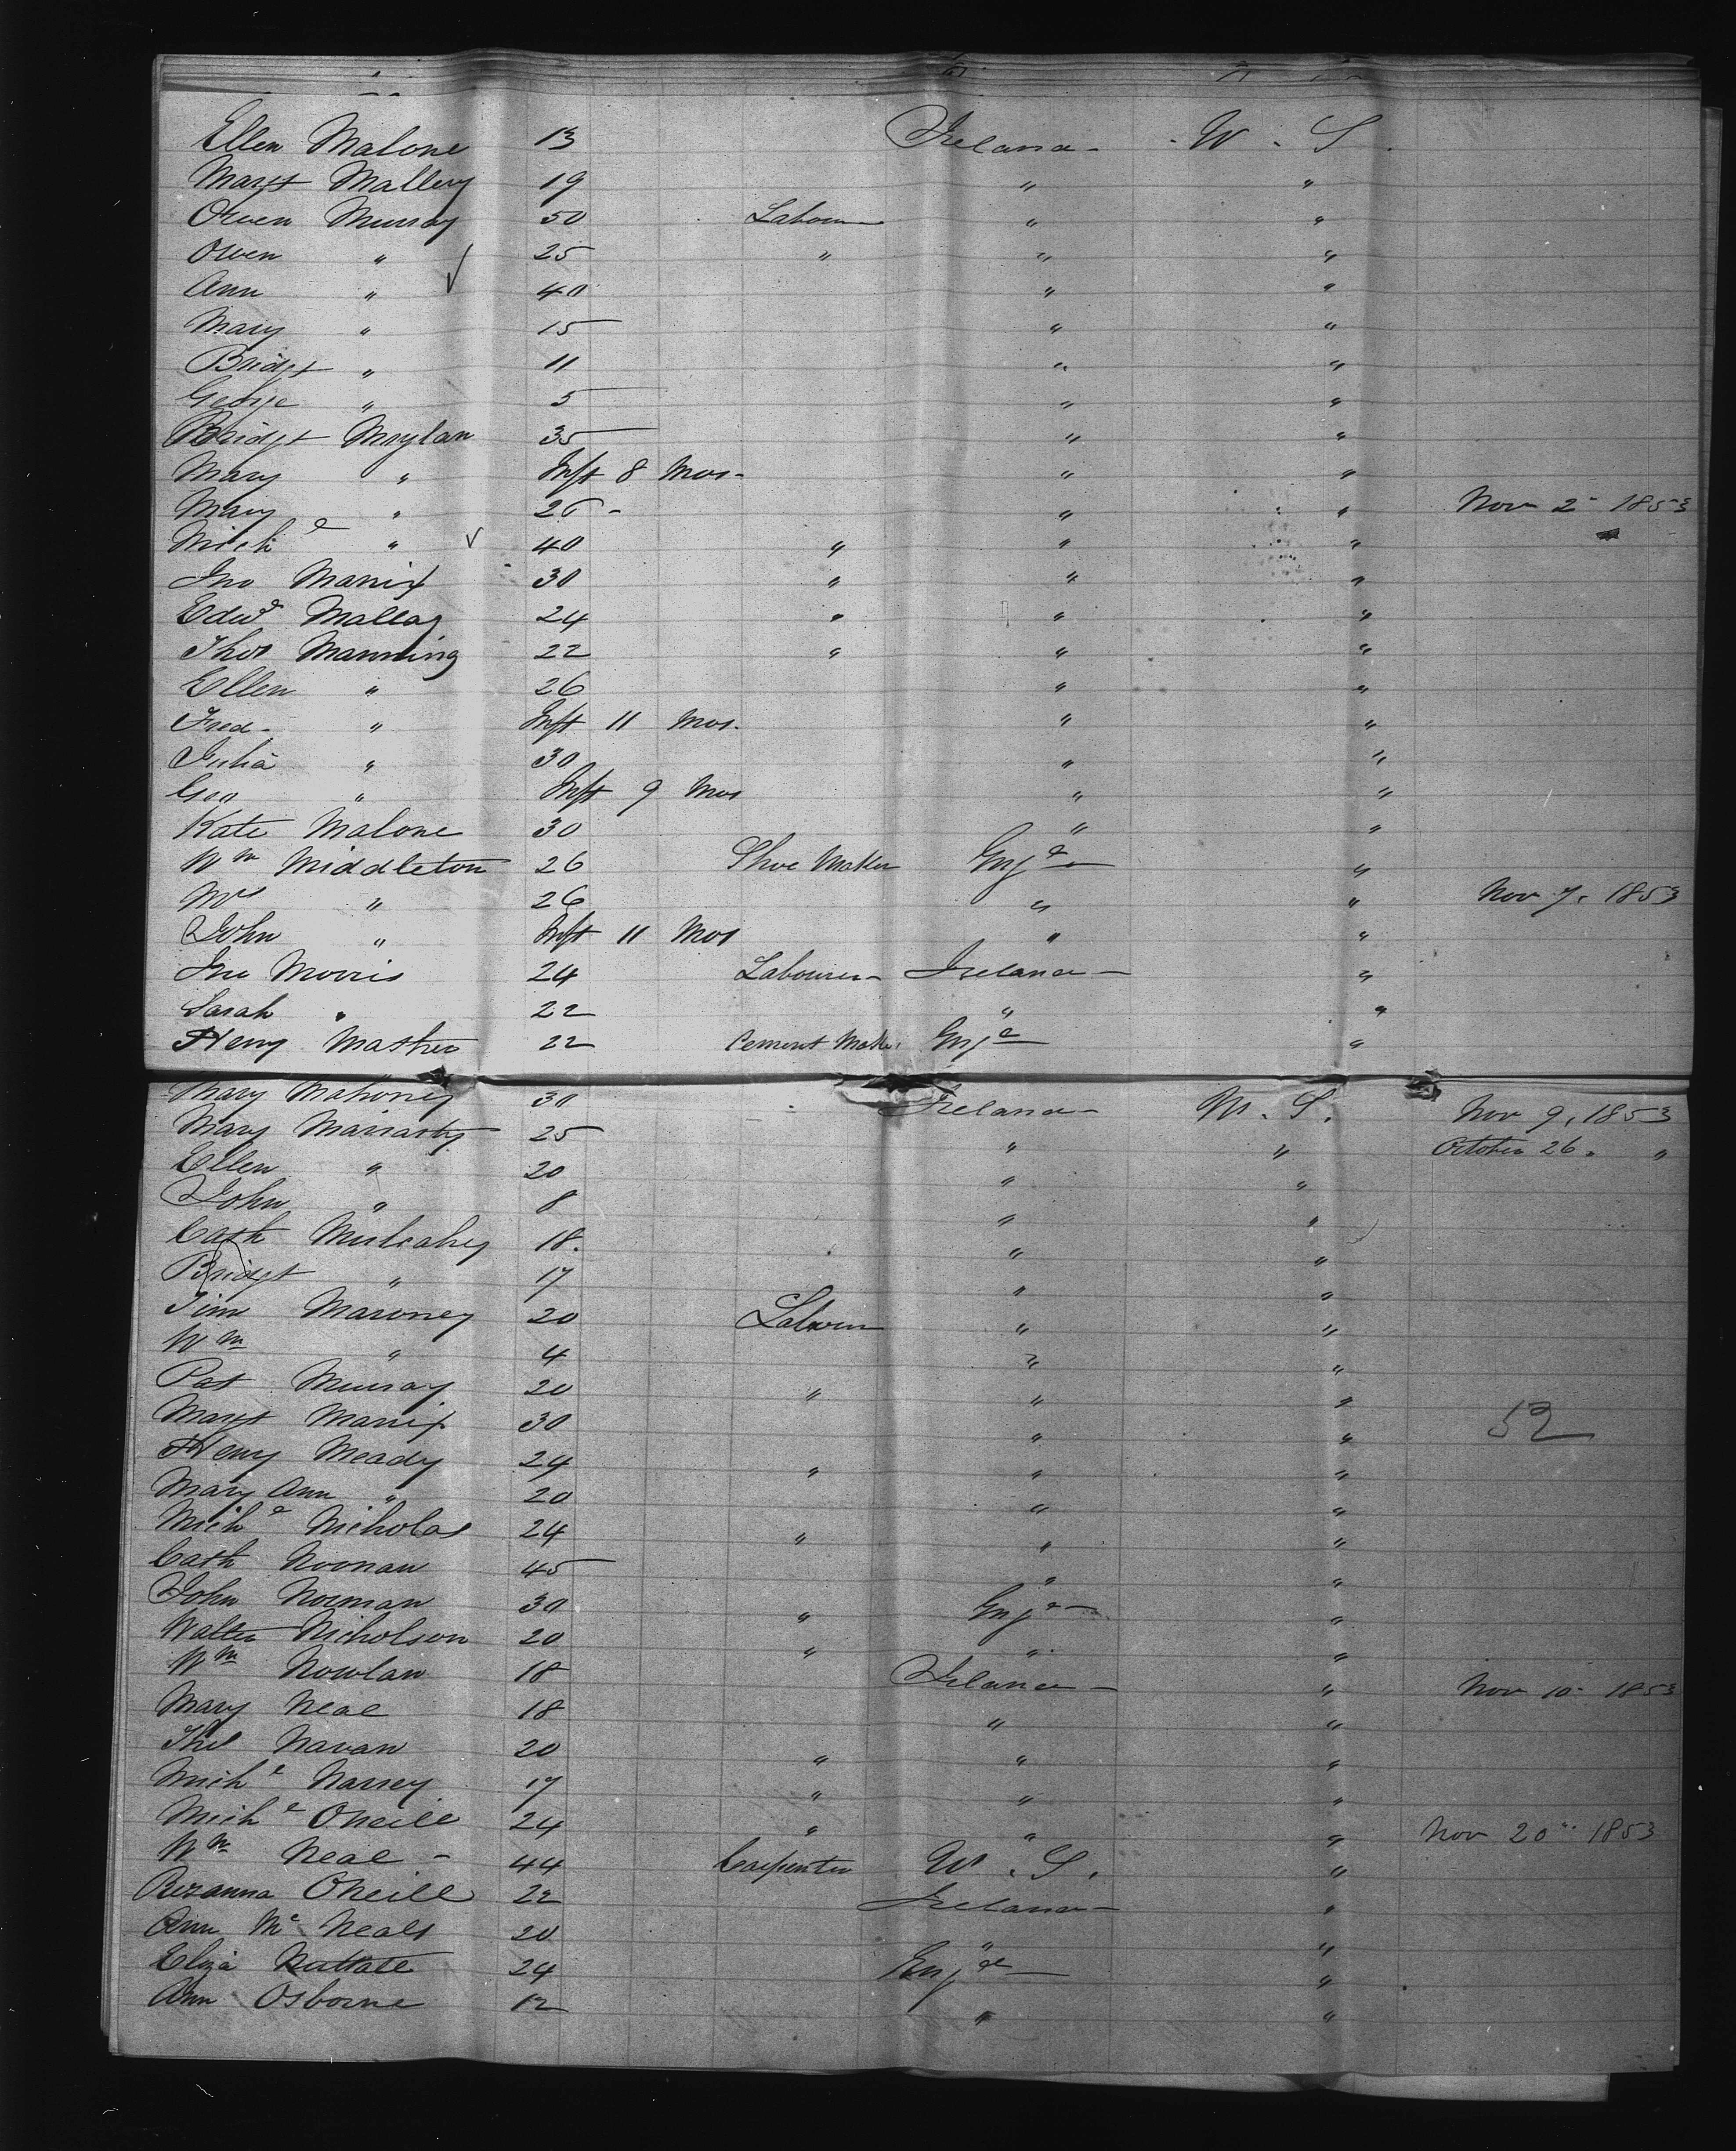 Ellen Malone 13 Ireland - W. S.
Margt Mallery 19 " "
Owen Murray 50 Labour " "
Owen " 25 " " "
Ann " 40 " "
Mary " 15 " "
Bridgt " 11 " "
George " 5 " "
Bridgt Moylan 35 " "
Mary " Inft 8 Mos- " "
Mary " 26 - " " Nov 2 - 1853
Michl " 40 " " "
Jno Manix 30 " " "
Edwd Malley 24 " " "
Thos Manning 22 " " "
Ellen " 26 " "
Fred- " Inft 11 Mos. " "
Julia " 30 " "
Geo " Inft 9 Mos " "
Kate Malone 30 " "
Wm Middleton 26 Shoe Maker Engd "
Mrs " 26 " " Nov 7, 1853
John " Inft 11 Mos " "
Jno Morris 24 Labourer - Ireland - "
Sarah " 22 " "
Henry Mather 22 Cement Maker Engd "
Mary Mahoney 30 Ireland - W. S. Nov 9, 1853
Mary Mariarty 25 " " October 26. "
Ellen " 20 " "
John " 8 " "
Cath Mulcahy 18. " "
Bridgt " 17 " "
Tim Maroney 20 Labour " "
Wm " 4 " "
Pat Murray 20 " " "
Margt Manix 30 " " 52
Henry Meady 24 " " "
Mary Ann " 20 " "
Michl Nicholas 24 " " "
Cath Noonan 45 " "
John Norman 30 " Engd - "
Walter Nicholson 20 " " "
Wm Nowlan 18 Ireland - " Nov 10 - 1853
Mary Neal 18 " "
Navan 20 " " "
Michl 17 " " "
Michl Oneill 24 " " " Nov 20" 1853
Wm Neal - 44 Carpenter W. S. "
Rozanna Oneill 22 Ireland - "
Ann Mc Neals 20 " "
Eliza 24 Engd "
Ann Osborne 12 " "